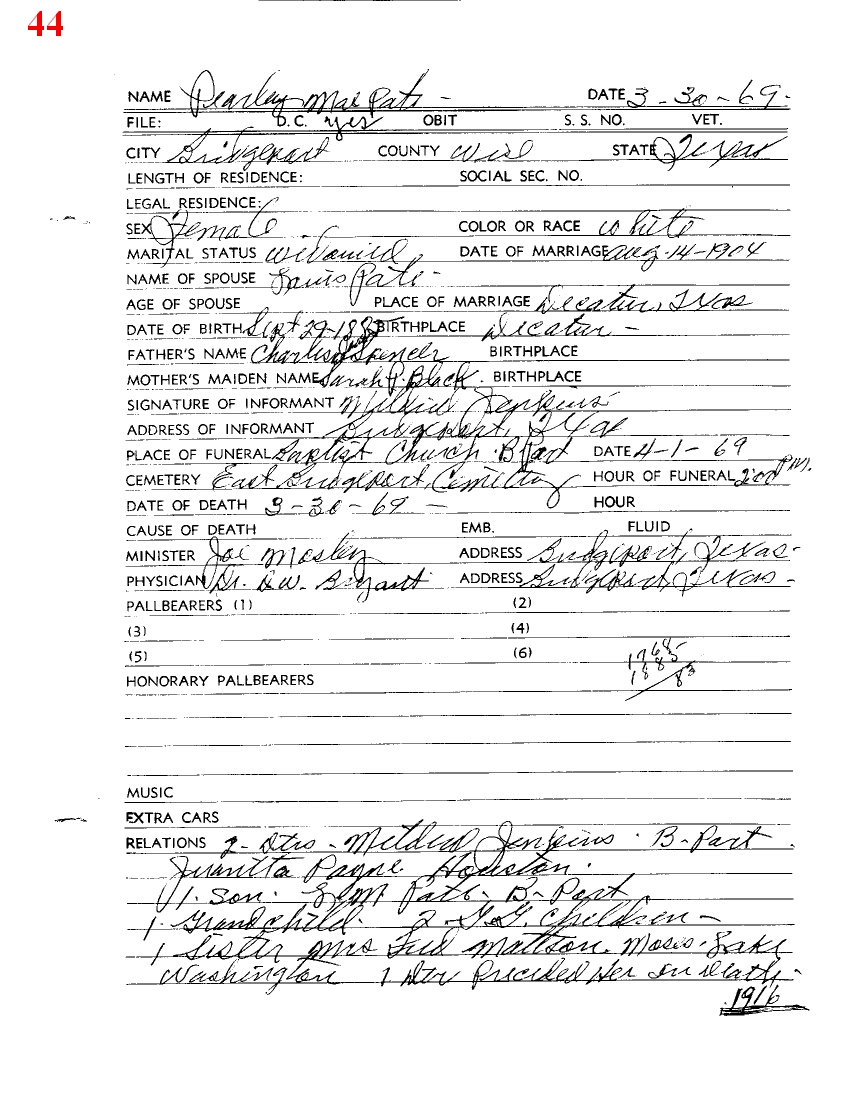 44
NAME Pearley Mae Pate - DATE 3-30-69-
FILE: D.C. yes OBIT S. S. NO. VET.
CITY Bridgeport COUNTY Wise STATE Texas
LENGTH OF RESIDENCE: SOCIAL SEC. NO.
LEGAL RESIDENCE:
SEX Female COLOR OR RACE White
MARITAL STATUS Widowed DATE OF MARRIAGE Aug-14-1904
NAME OF SPOUSE Pate -
AGE OF SPOUSE PLACE OF MARRIAGE Decatur, Texas
DATE OF BIRTH Sept 29-1885 BIRTHPLACE Decatur -
FATHER'S NAME Charles Spencer BIRTHPLACE
MOTHER'S MAIDEN NAME Sarah Black. BIRTHPLACE
SIGNATURE OF INFORMANT Mildred Jenkins
ADDRESS OF INFORMANT Bridgeport,
PLACE OF FUNERAL Baptist Church BPart DATE 4-1-69
CEMETERY East Bridgeport Cemetery HOUR OF FUNERAL 2:00 PM.
DATE OF DEATH 3-30-69 - HOUR
CAUSE OF DEATH EMB. FLUID
MINISTER Joe Mosley ADDRESS Bridgeport, Texas-
PHYSICIAN Dr. Bryant ADDRESS Bridgeport, Texas-
PALLBEARERS (1) (2)
(3) (4)
(5) (6)
1968
1885
83
HONORARY PALLBEARERS
MUSIC
EXTRA CARS
RELATIONS 2-Dtrs - Mildred Jenkins. B-Part.
Juanita Payne Houston.
1. Son. Pate. B-Part,
1. Grandchild. 2-G.G. children-
1 Sister Mrs Mattson. Moses-Lake
Washington 1 Dtr Preceded Her In death-
1916